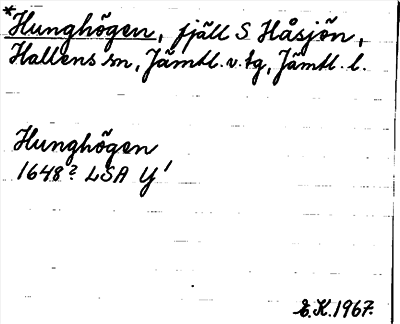 *Hunghögen, fjäll S Håsjön,
Hallens sn, Jämtl. v. tg, Jämtl. l.
Hunghögen
1648? LSA Y'
E.K. 1967.